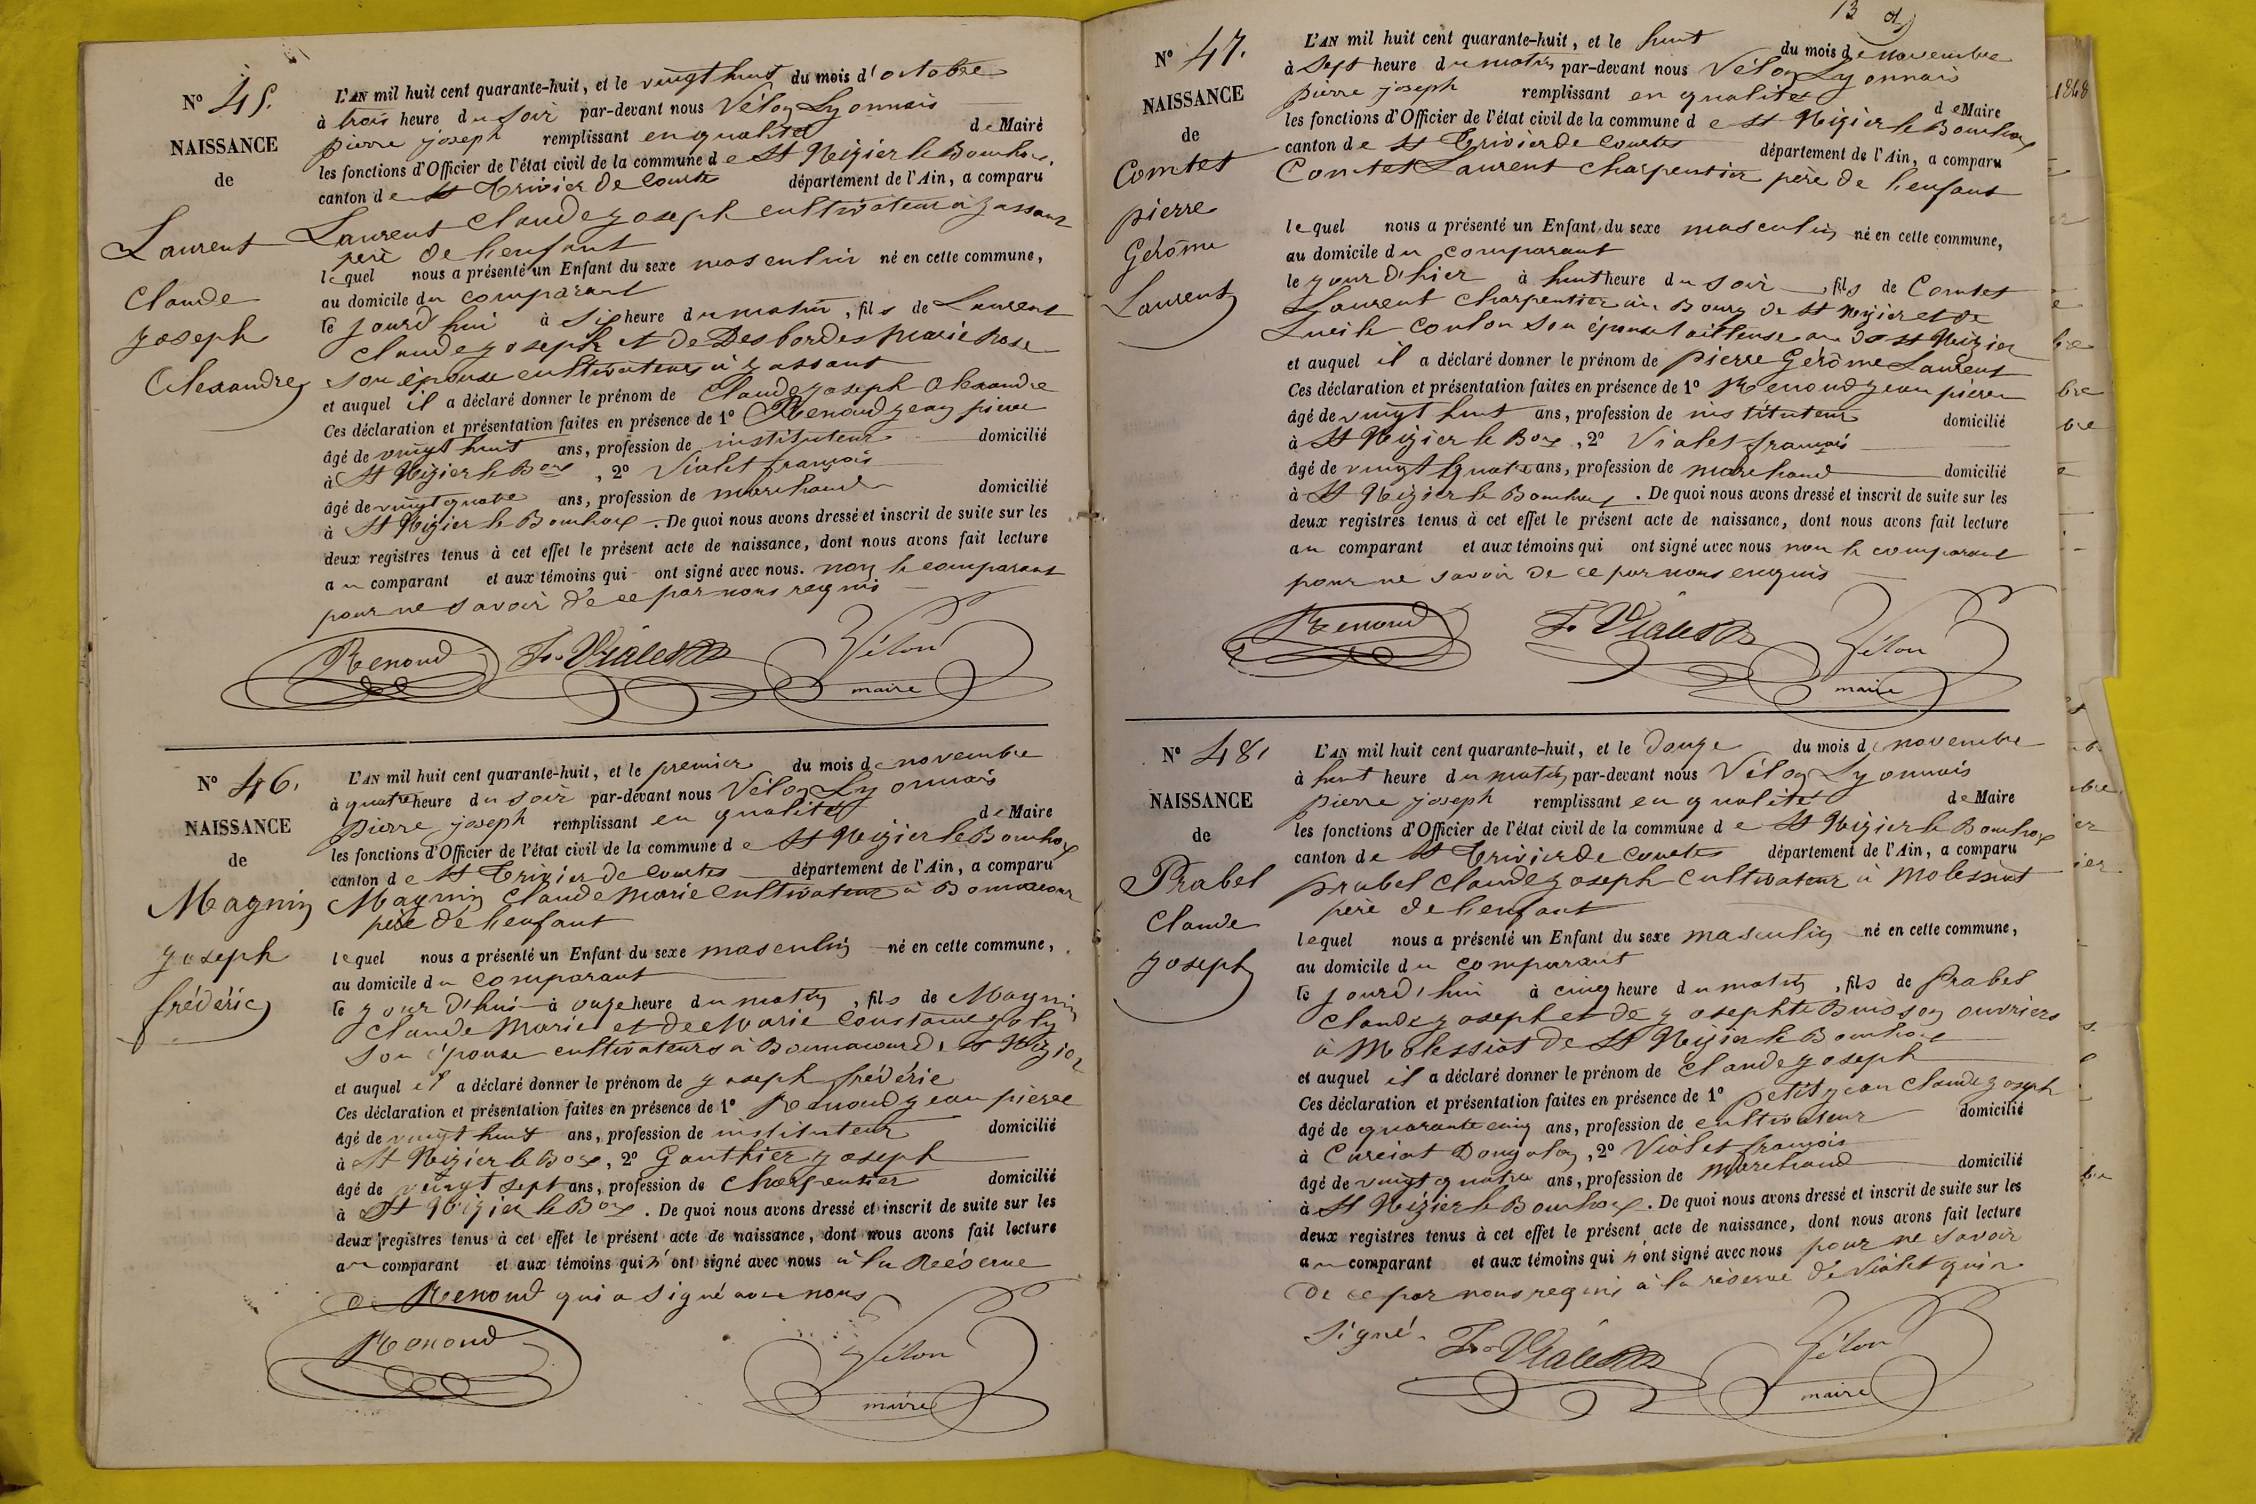 N° 45.
NAISSANCE
de
Laurent
Claude
joseph
Alexandre
L'AN mil huit cent quarante-huit, et le vingt huit du mois d'octobre
à trois heure du soir par-devant nous Vélon Lyonnais
pierre joseph remplissant en qualité de Maire
les fonctions d'Officier de l'état civil de la commune de St Nizier le Bouchoux
canton de St Trivier de Courtes département de l'Ain, a comparu
Laurent Claude joseph cultivateur à
père de l'enfant
lequel nous a présenté un Enfant du sexe masculin né en cette commune,
au domicile du comparant
le jourd'hui à six heure du matin, fils de Laurent
Claude joseph et de Desbordes Marie Rose
son épouse cultivateurs à
et auquel il a déclaré donner le prénom de Claude joseph Alexandre
Ces déclaration et présentation faites en présence de 1° Renoud jean pierre
âgé de vingt huit ans, profession de instituteur domicilié
à St Nizier le Boux, 2° Vialet françois
âgé de vingt quatre ans, profession de marchand domicilié
à St Nizier le Bouchoux. De quoi nous avons dressé et inscrit de suite sur les
deux registres tenus à cet effet le présent acte de naissance, dont nous avons fait lecture
au comparant et aux témoins qui ont signé avec nous. non le comparant
pour ne savoir de ce par nous requis
Renoud F. Vialet Vélon
maire
N° 46.
NAISSANCE
de
Magnin
joseph
frédéric
L'AN mil huit cent quarante-huit, et le premier du mois de novembre
à quatre heure du soir par-devant nous Vélon Lyonnais
pierre joseph remplissant en qualité de Maire
les fonctions d'Officier de l'état civil de la commune de St Nizier le Bouchoux
canton de St Trivier de Courtes département de l'Ain, a comparu
Magnin Claude Marie cultivateur à
père de l'enfant
lequel nous a présenté un Enfant du sexe masculin né en cette commune,
au domicile du comparant
le jour d'hui à onze heure du matin, fils de Magnin
Claude Marie et de Marie Constance joly
son épouse cultivateurs à St Nizier
et auquel il a déclaré donner le prénom de joseph frédéric
Ces déclaration et présentation faites en présence de 1° Renoud jean pierre
âgé de vingt huit ans, profession de instituteur domicilié
à St Nizier le Boux, 2° Gauthier joseph
âgé de vingt sept ans, profession de charpentier domicilié
à St Nizier le Boux. De quoi nous avons dressé et inscrit de suite sur les
deux registres tenus à cet effet le présent acte de naissance, dont nous avons fait lecture
au comparant et aux témoins qui n'ont signé avec nous à la Réserve
de Renoud qui a signé avec nous
Renoud Vélon
maire
13
N° 47.
NAISSANCE
de
Comtet
pierre
Gérôme
Laurent
L'AN mil huit cent quarante-huit, et le huit du mois de novembre
à sept heure du matin par-devant nous Vélon Lyonnais
pierre joseph remplissant en qualité de Maire
les fonctions d'Officier de l'état civil de la commune de St Nizier le Bouchoux
canton de St Trivier de Courtes département de l'Ain, a comparu
Comtet Laurent charpentier père de l'enfant
lequel nous a présenté un Enfant du sexe masculin né en cette commune,
au domicile du comparant
le jour d'hier à huit heure du soir, fils de Comtet
Laurent charpentier au Bourg de St Nizier et de
Lucile Coulon son épouse tailleuse au d St Nizier
et auquel il a déclaré donner le prénom de pierre Gérôme Laurent
Ces déclaration et présentation faites en présence de 1° Renoud jean pierre
âgé de vingt huit ans, profession de instituteur domicilié
à St Nizier le Boux, 2° Vialet françois
âgé de vingt quatre ans, profession de marchand domicilié
à St Nizier le Bouchoux. De quoi nous avons dressé et inscrit de suite sur les
deux registres tenus à cet effet le présent acte de naissance, dont nous avons fait lecture
au comparant et aux témoins qui ont signé avec nous non le comparant
pour ne savoir de ce par nous enquis
Renoud F. Vialet Vélon
maire
N° 48.
NAISSANCE
de
Prabel
Claude
joseph
L'AN mil huit cent quarante-huit, et le douze du mois de novembre
à huit heure du matin par-devant nous Vélon Lyonnais
pierre joseph remplissant en qualité de Maire
les fonctions d'Officier de l'état civil de la commune de St Nizier le Bouchoux
canton de St Trivier de Courtes département de l'Ain, a comparu
prabel Claude joseph cultivateur à Molessiat
père de l'enfant
lequel nous a présenté un Enfant du sexe masculin né en cette commune,
au domicile du comparant
le jourd'hui à cinq heure du matin, fils de Prabel
Claude joseph et de josephte Buisson ouvriers
à Molessiat de St Nizier le Bouchoux
et auquel il a déclaré donner le prénom de Claude joseph
Ces déclaration et présentation faites en présence de 1° petitjean Claude joseph
âgé de quarante cinq ans, profession de cultivateur domicilié
à Curciat Dongalon, 2° Vialet françois
âgé de vingt quatre ans, profession de Marchand domicilié
à St Nizier le Bouchoux. De quoi nous avons dressé et inscrit de suite sur les
deux registres tenus à cet effet le présent acte de naissance, dont nous avons fait lecture
au comparant et aux témoins qui n'ont signé avec nous pour ne savoir
de ce par nous requis à la réserve de Vialet qui a
signé.
F. Vialet Vélon
maire
1848